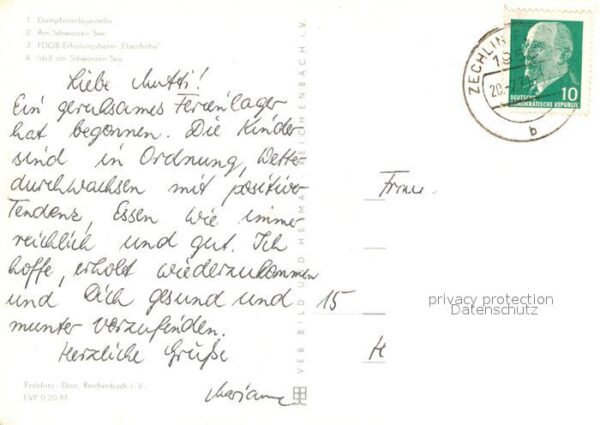 1. Dampferanlegestelle
2. Am Schwarzen See
3 FDGB-Erholungsheim „Ebenhöhe"
4. Idyll am Schwarzen See
Liebe Mutti!
Ein geruhsames Ferienlager
hat begonnen. Die Kinder
sind in Ordnung, Wetter
durchwachsen mit positiver
Tendenz, Essen wie immer
reichlich und gut. Ich
hoffe, erholt wiederzukommen
und Dich gesund und
munter vorzufinden.
Herzliche Grüße
Marianne
Farbfoto: Darr, Reichenbach i. V.
EVP 0,20 M
VEB BILD UND HEIMAT REICHENBACH i. V.
ZECHLIN
20.-7.
b
10
DEUTSCHE
DEMOKRATISCHE REPUBLIK
Frau
15
H
privacy protection
Datenschutz